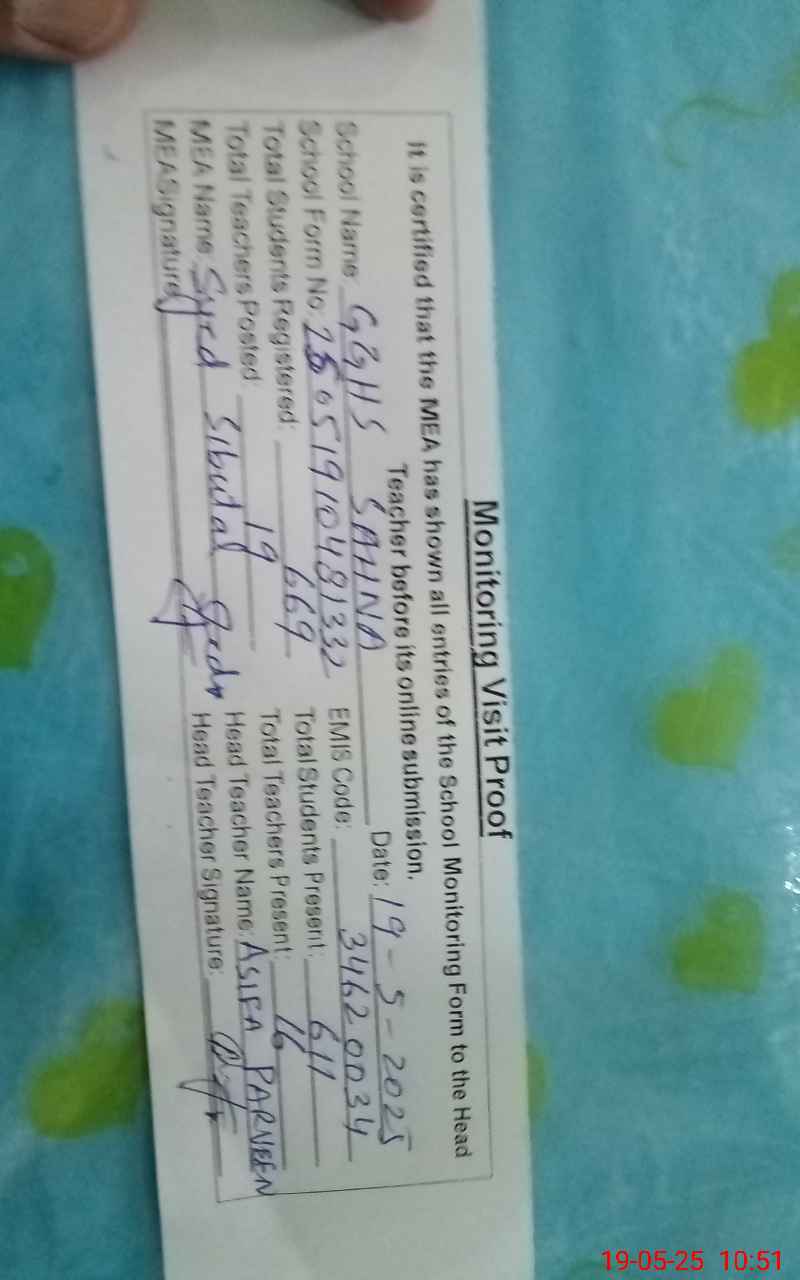 Monitoring Visit Proof
It is certified that the MEA has shown all entries of the School Monitoring Form to the Head
Teacher before its online submission.
Date: 19-5-2025
School Name: GGHS SAHNA
EMIS Code: 34620034
School Form No: 25051910481332
Total Students Present: 611
Total Students Registered: 669
Total Teachers Present: 16
Total Teachers Posted: 19
Head Teacher Name: ASIFA PARNEEN
MEA Name: Syed Sibutal
Head Teacher Signature:
MEA Signature
19-05-25 10:51